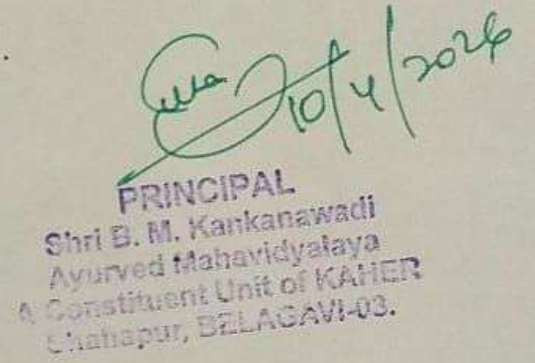 10/4/2026
PRINCIPAL
Shri B. M. Kankanawadi
Ayurved Mahavidyalaya
A Constituent Unit of KAHER
Shahapur, BELAGAVI-03.